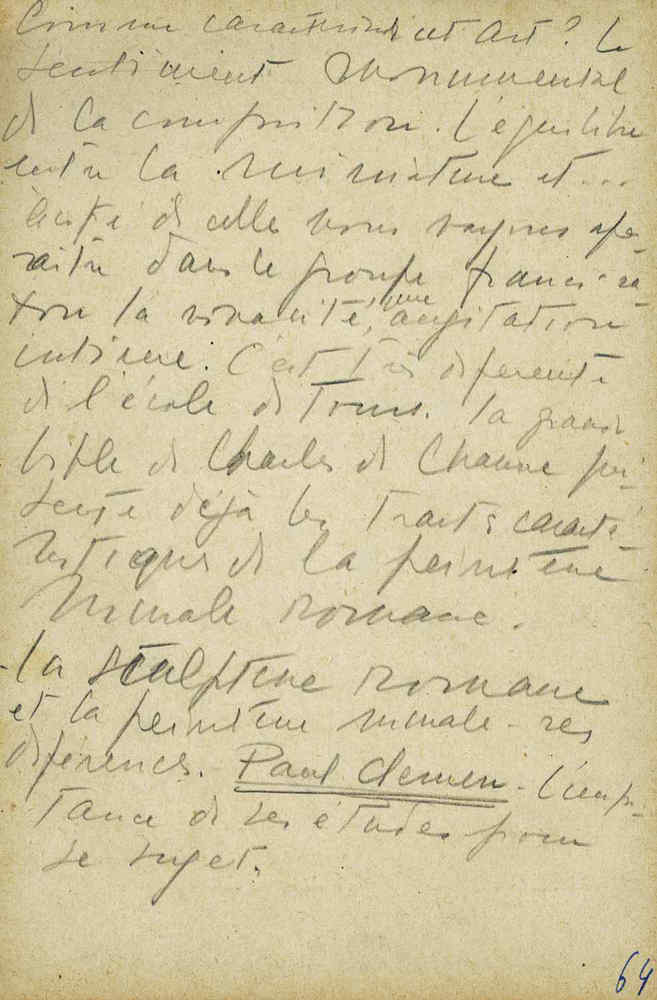 Comme caractériser cet art? Le
sentiment monumental
de la composition. L'équilibre
entre la miniature et ...
de celle nous voyons apa-
raitre dans le groupe franco-sa-
xon la vivacité, une agitation
intime. C'est très diferente
de l'école de Tours. La grande
bible de Charles le Chauve pré-
sente déjà les traits caracté-
ristiques de la peinture
murale romane.
- La sculpture romane
et la peinture murale - ses
diferences. Paul Clemen - L'impor-
tance de ses études pour
se sujet.
64